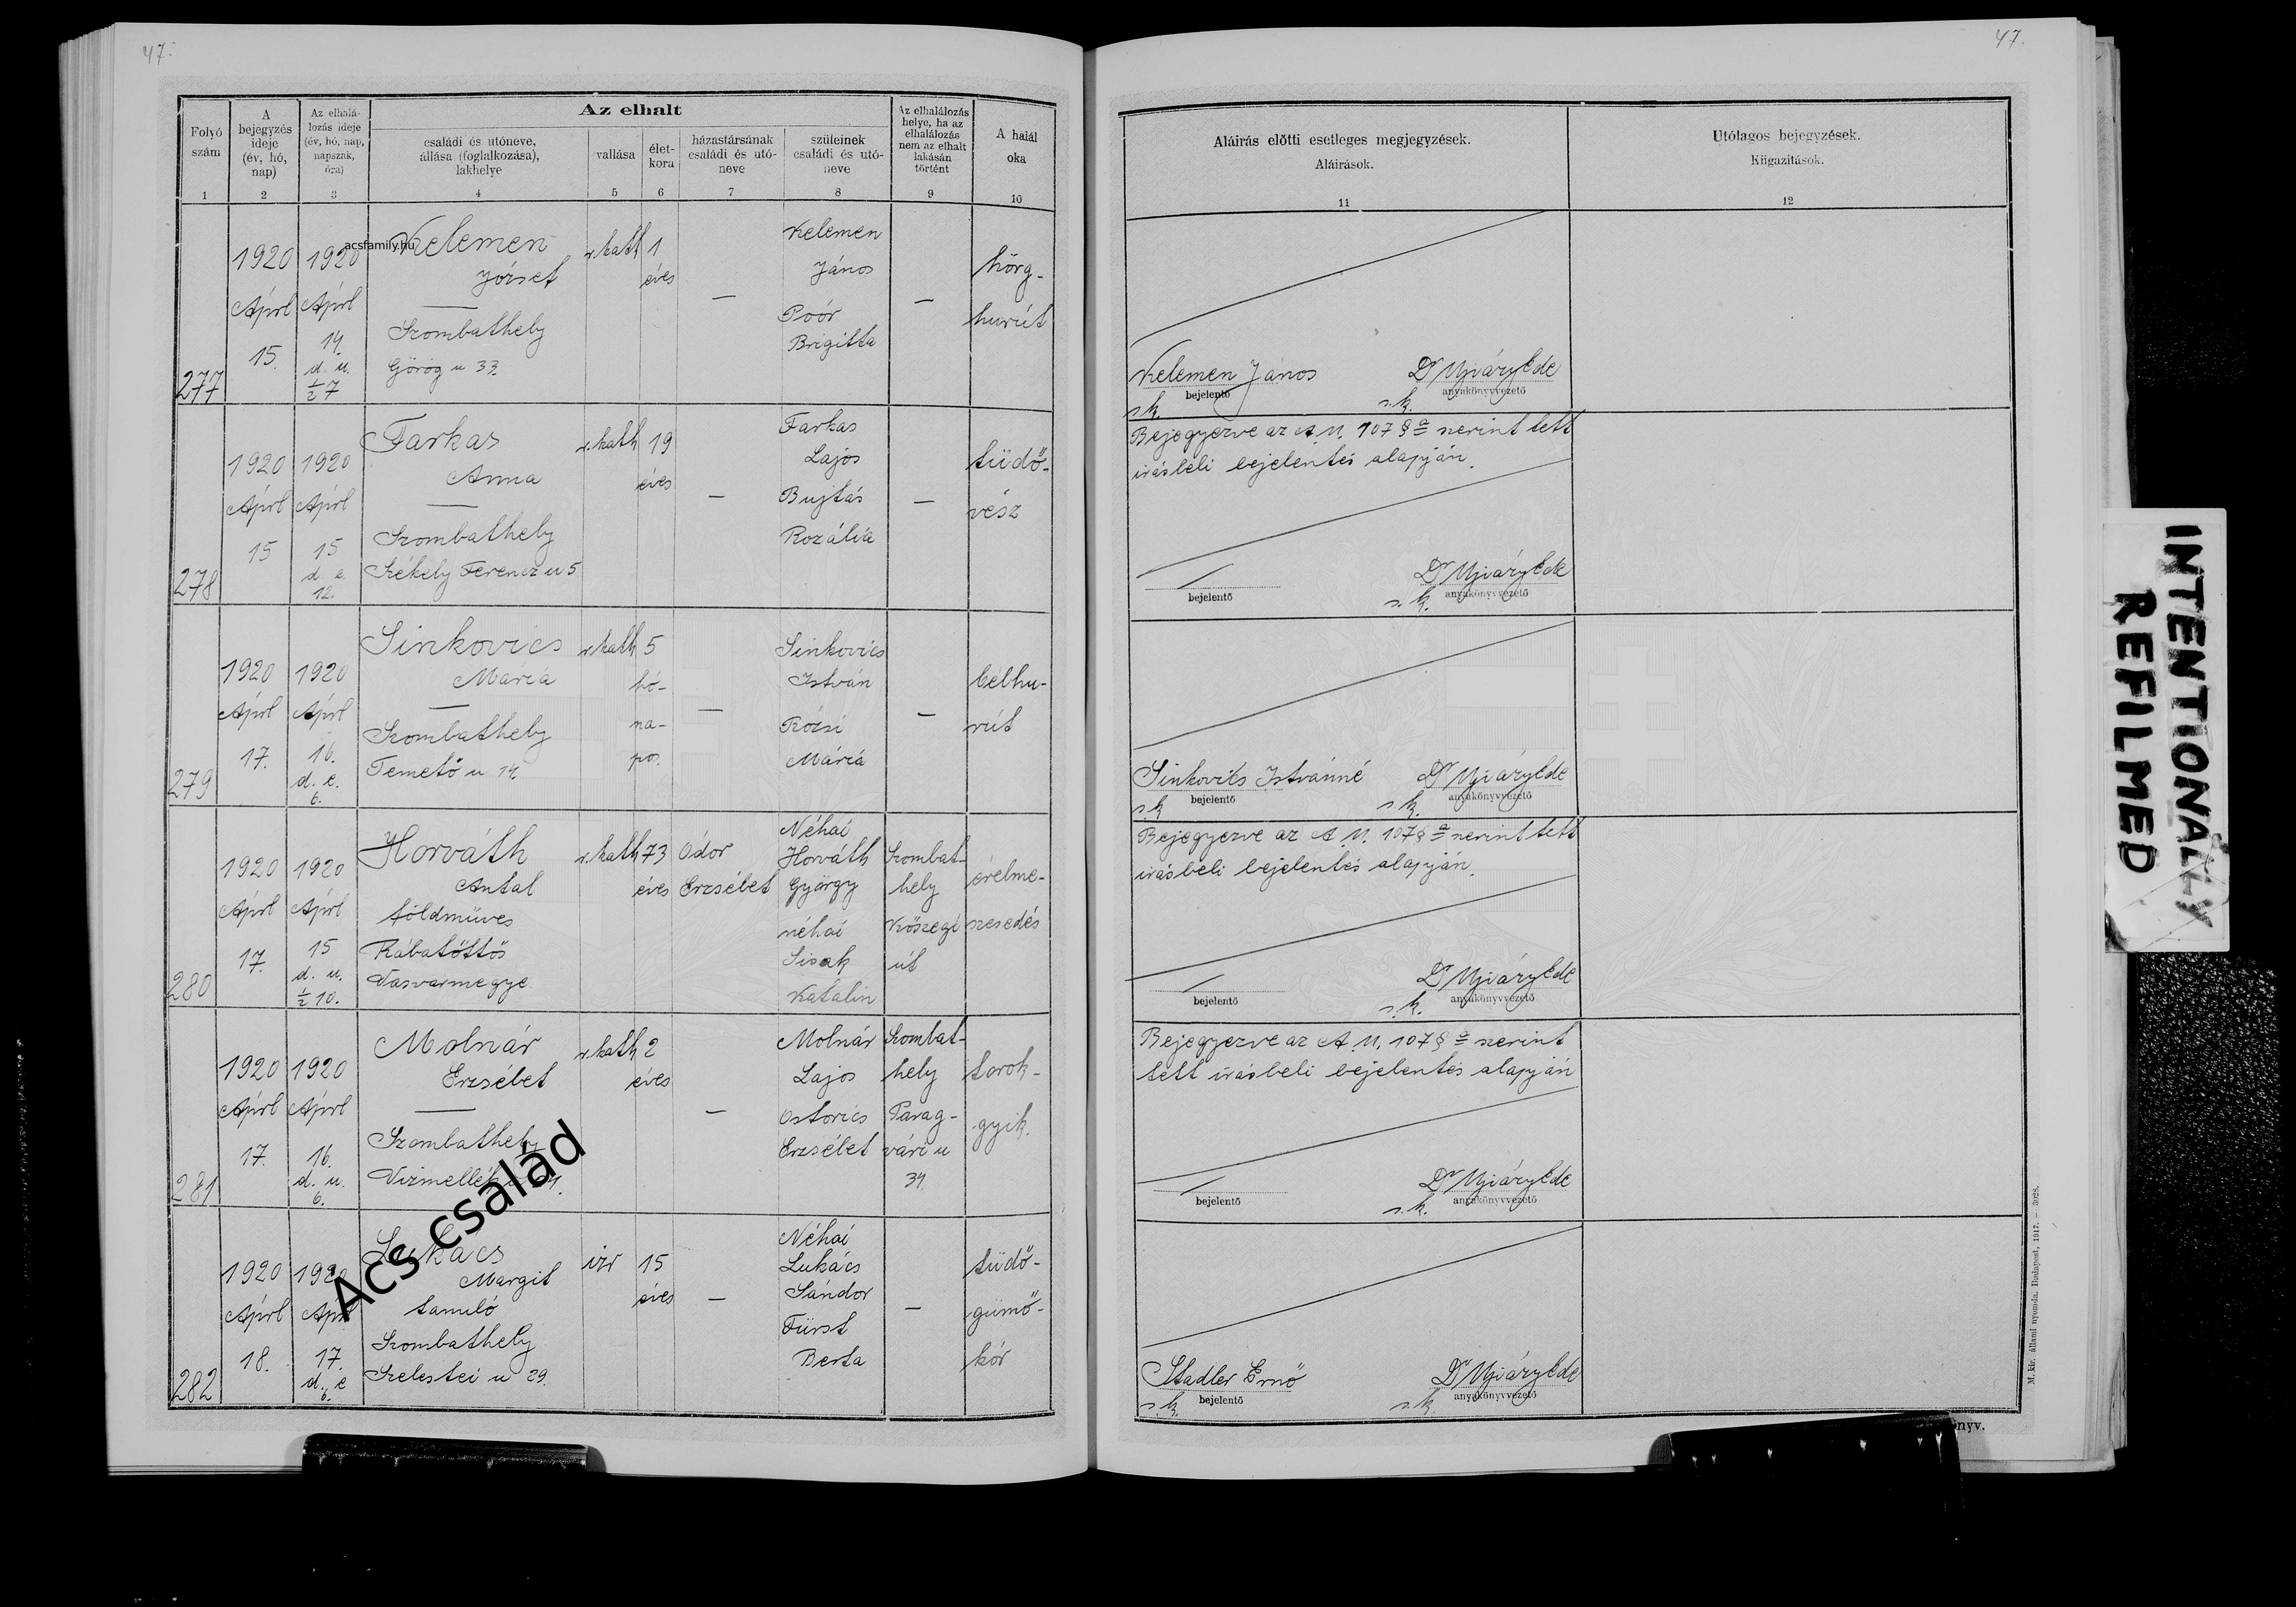 47.
47.
Folyó
szám
1
A
bejegyzés
ideje
(év, hó,
nap)
2
Az elhalá-
lozás ideje
(év, hó, nap,
napszak,
óra)
3
Az elhalt
családi és utóneve,
állása (foglalkozása),
lakhelye
4
vallása
5
élet-
kora
6
házastársának
családi és utó-
neve
7
szüleinek
családi és utó-
neve
8
Az elhalálozás
helye, ha az
elhalálozás
nem az elhalt
lakásán
történt
9
A halál
oka
10
Aláírás előtti esetleges megjegyzések.
Aláírások.
11
Utólagos bejegyzések.
Kiigazítások.
12
277
1920
Ápril
15.
1920
Ápril
14.
d. u.
½ 7
acsfamily.hu
Kelemen
József
—
Szombathely
Görög u 33.
r. kath
1
éves
—
Kelemen
János
Poór
Brigitta
—
hörg-
hurút
Kelemen János
bejelentő
s. k.
Dr Ujváry Ede
anyakönyvvezető
s. k.
278
1920
Ápril
15
1920
Ápril
15
d. e.
12.
Farkas
Anna
—
Szombathely
Székely Ferencz u 5
r. kath
19
éves
—
Farkas
Lajos
Bujtás
Rozália
—
tüdő-
vész
Bejegyezve az A. U. 107 § a szerint tett
írásbeli bejelentés alapján.
bejelentő
Dr Ujváry Ede
anyakönyvvezető
s. k.
279
1920
Ápril
17.
1920
Ápril
16.
d. e.
6.
Sinkovics
Mária
—
Szombathely
Temető u 14.
r. kath
5
hó-
na-
po.
—
Sinkovics
István
Rózsi
Mária
—
bélhu-
rút
Sinkovics Istvánné
bejelentő
s. k.
Dr Ujváry Ede
anyakönyvvezető
s. k.
280
1920
Ápril
17.
1920
Ápril
15
d. u.
½ 10.
Horváth
Antal
földmüves
Rábatöttös
Vasvarmegye
r. kath
73
éves
Ódor
Erzsébet
Néhai
Horváth
György
néhai
Sisak
Katalin
Szombat-
hely
Kőszegi
út
érelme-
szesedés
Bejegyezve az A. U. 107 § a szerint tett
írásbeli bejelentés alapján.
bejelentő
Dr Ujváry Ede
anyakönyvvezető
s. k.
281
1920
Ápril
17.
1920
Ápril
16.
d. u.
6.
Molnár
Erzsébet
—
Szombathely
Vizmellék
r. kath
2
éves
—
Molnár
Lajos
Ostorics
Erzsébet
Szombat-
hely
Parag-
vári u
34.
torok-
gyik.
Bejegyezve az A. U. 107 § a szerint
tett írásbeli bejelentés alapján
bejelentő
Dr Ujváry Ede
anyakönyvvezető
s. k.
282
1920
Ápril
18.
1920
Ápril
17.
d. e
6.
Lukács
Margit
tanuló
Szombathely
Szelestei u 29.
izr
15
éves
—
Néhai
Lukács
Sándor
Fürst
Berta
—
tüdő-
gümő-
kór
Stadler Ernő
bejelentő
s. k.
Dr Ujváry Ede
anyakönyvvezető
s. k.
Acs család
M. kir. állami nyomda. Budapest, 1917. — 3028.
INTENTIONALLY
REFILMED